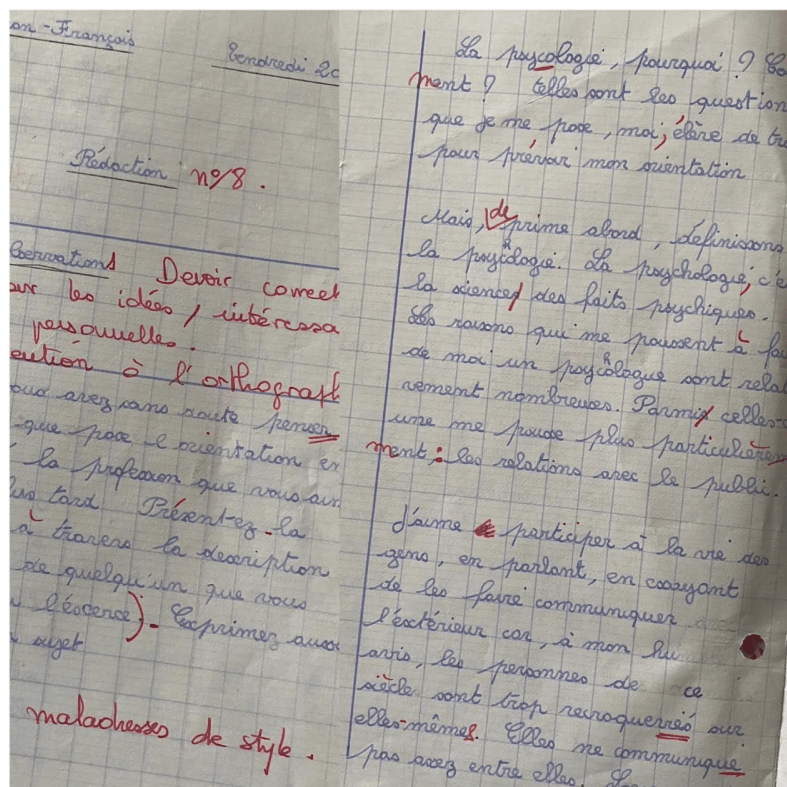 on - Français
Vendredi 20
Rédaction n°8.
Observations Devoir correct
sur les idées, intéressa
personnelles.
attention à l'orthograph
vous avez sans doute penser
que pose l'orientation en
la profession que vous aim
plus tard Présentez-la
à travers la description
de quelqu'un que vous
l'éxcence). Exprimez aussi
sujet
maladresses de style.
La psycologie, pourquoi ? Co
ment ? telles sont les question
que je me pose, moi, élève de tr
pour prévoir mon orientation
Mais, de prime abord, définissons
la psychologie. La psychologie, c'e
la science des faits psychiques.
Les raisons qui me poussent à fai
de moi un psychologue sont rela
vement nombreuses. Parmi celles-c
une me pousse plus particulièrem
ment : les relations avec le public.
J'aime participer à la vie des
gens, en parlant, en essayant
de les faire communiquer
l'exctérieur car, à mon hu
avis, les personnes de ce
siècle sont trop recroquevriés sur
elles-mêmes. Elles ne communique
pas assez entre elles.